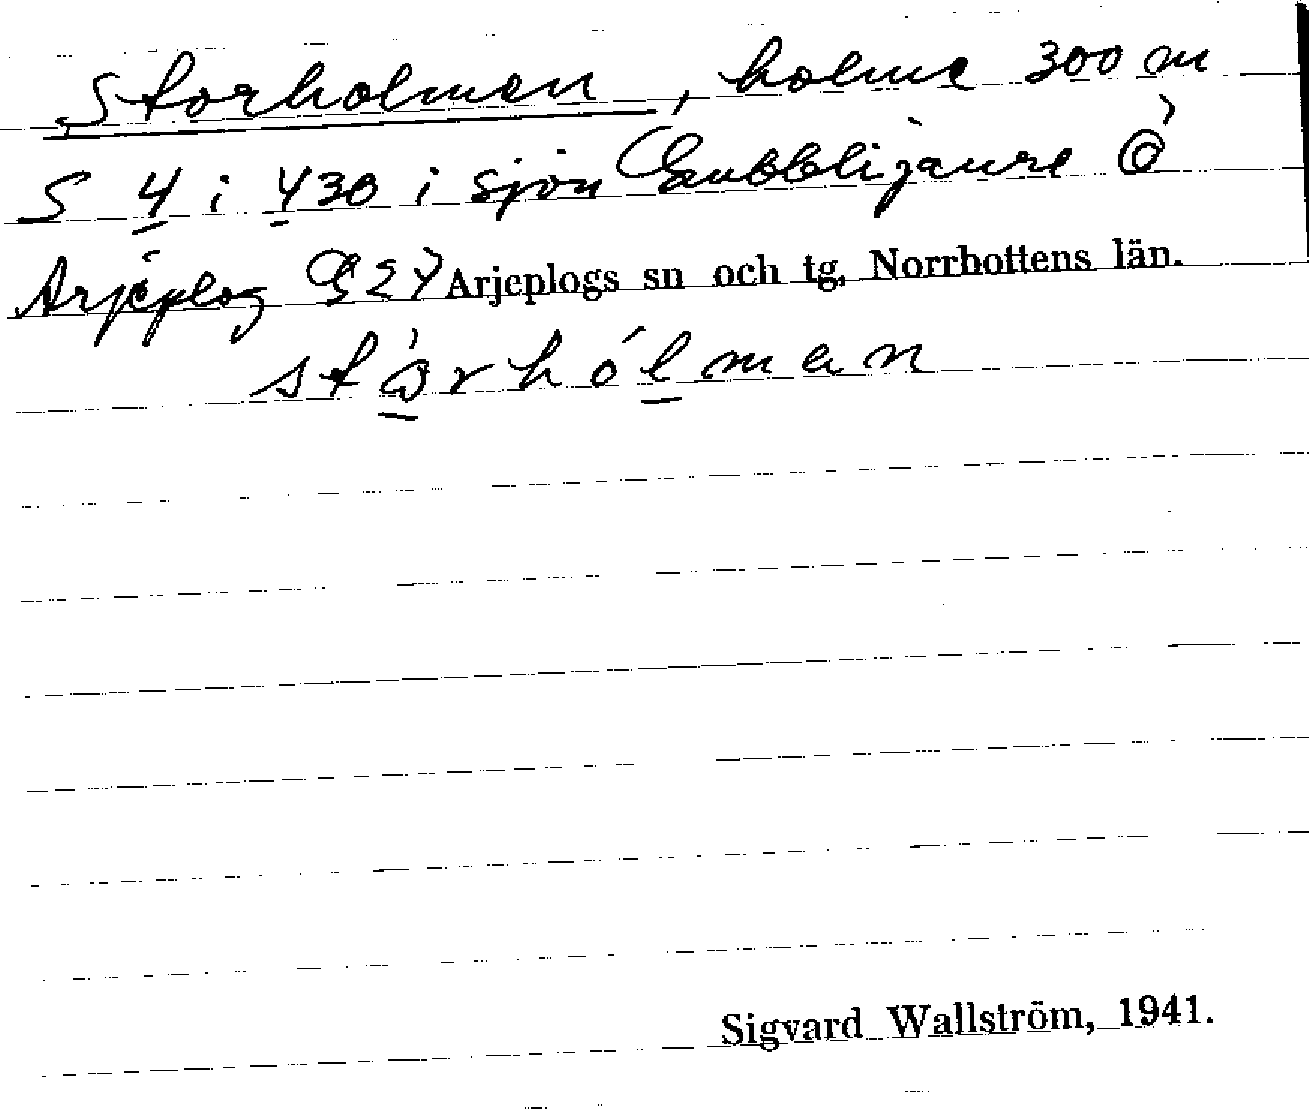 Storholmen, holme 300 m
S 4 i 430 i sjön Gubblijaure Ö
Arjeplog G 27 Arjeplogs sn och tg, Norrbottens län.
stòrhólman
Sigvard Wallström, 1941.